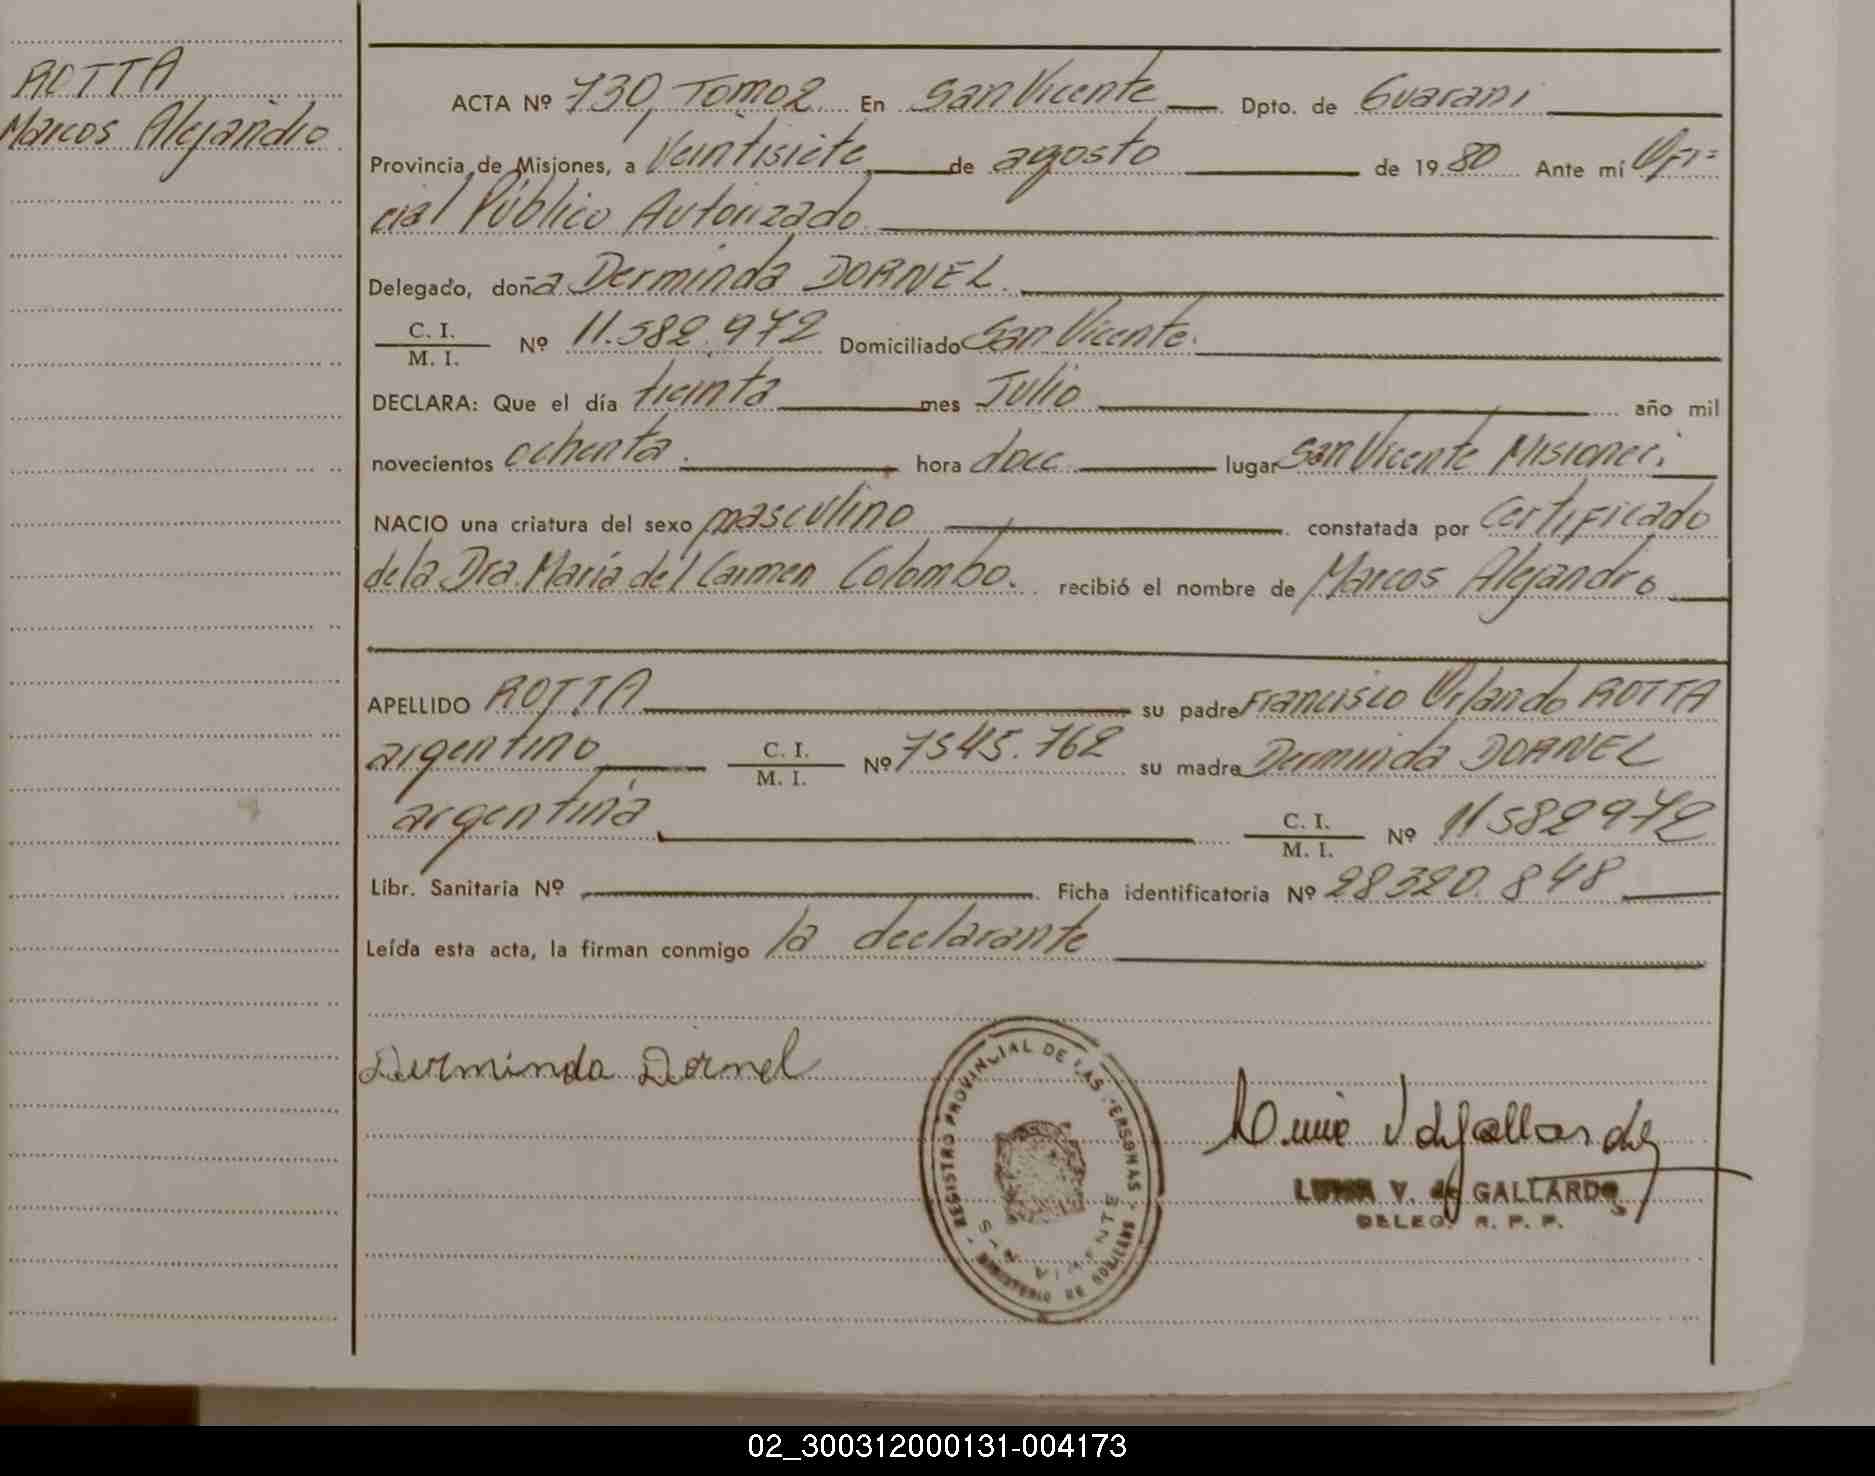 ROTTA
Marcos Alejandro
ACTA Nº 730, Tomo 2 En San Vicente Dpto. de Guarani
Provincia de Misiones, a Veintisiete de agosto de 1980 Ante mí Ofi=
cial Público Autorizado
Delegado, doña Derminda DORNEL.
C. I.
M. I. Nº 11.582.972 Domiciliado San Vicente.
DECLARA: Que el día treinta mes Julio año mil
novecientos ochenta. hora doce lugar San Vicente Misiones.
NACIO una criatura del sexo masculino constatada por Certificado
de la Dra. María del Carmen Colombo. recibió el nombre de Marcos Alejandro
APELLIDO ROTTA su padre Francisco Orlando ROTTA
argentino C. I.
M. I. Nº 7545.762 su madre Derminda DORNEL
argentina C. I.
M. I. Nº 11582972
Libr. Sanitaria Nº Ficha identificatoria Nº 28320.848
Leída esta acta, la firman conmigo la declarante
Derminda Dornel
REGISTRO PROVINCIAL DE LAS PERSONAS
V. de GALLARDO
DELEG. R. P. P.
02_300312000131-004173